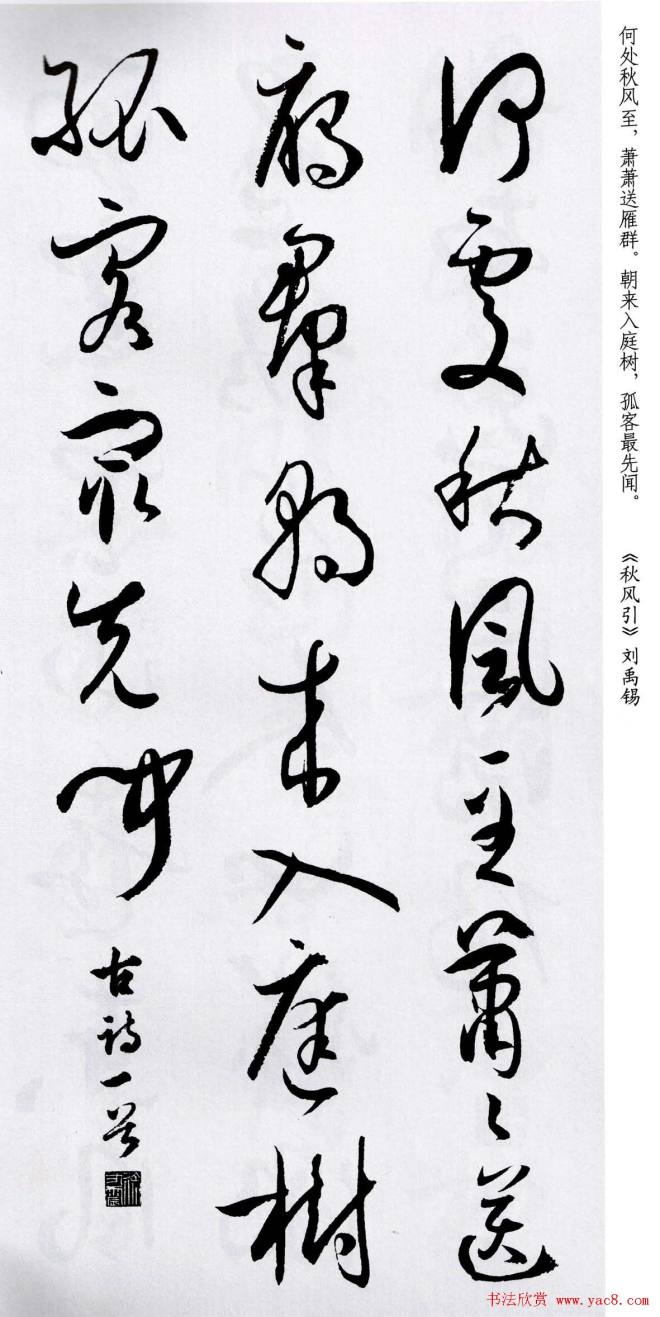 何处秋风至，萧萧送雁群。朝来入庭树，孤客最先闻。 《秋风引》刘禹锡
何處秋風至蕭々送
雁羣朝来入庭樹
孤客最先聞
古詩一首
书法欣赏 www.yac8.com